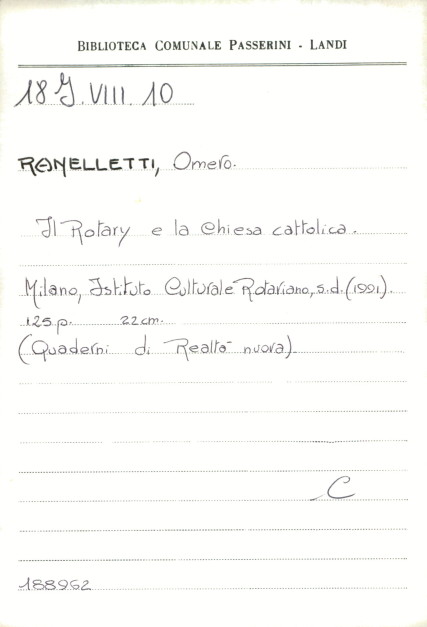 BIBLIOTECA COMUNALE PASSERINI - LANDI
18 J. VIII. 10
RANELLETTI, Omero.
Il Rotary e la Chiesa cattolica.
Milano, Istituto Culturale Rotariano, s.d. (1991).
125 p. 22 cm.
(Quaderni di Realtà nuova).
C
188962